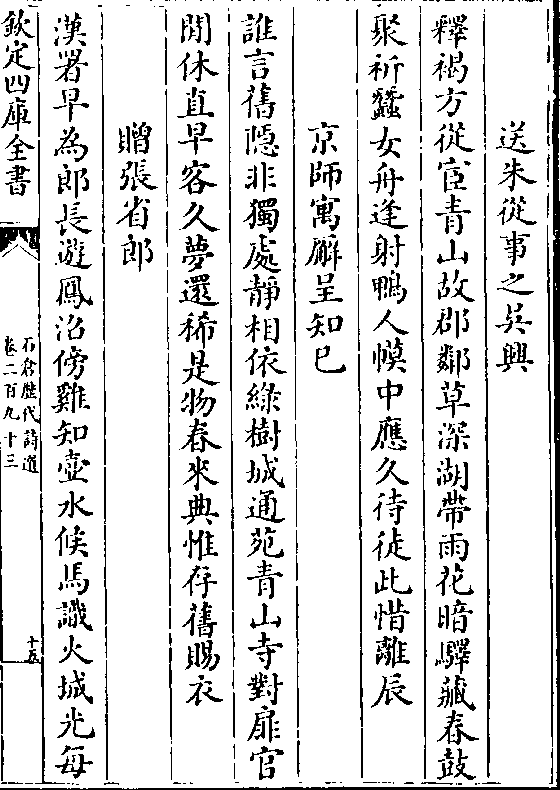 送朱從事之吳興
釋褐方從宦青山故郡鄰草深湖帶雨花暗驛藏春鼓
聚祈蠶女舟逢射鴨人幙中應久待從此惜離辰
京師寓廨呈知已
誰言舊隱非獨處靜相依綠樹城通苑青山寺對扉官
閒休直早客久夢還稀是物春來典惟存舊賜衣
贈張省郎
漢署早為郎長遊鳳沼傍雞知壺水候馬識火城光每
欽定四庫全書
石倉歷代詩選
卷二百九十三
十五